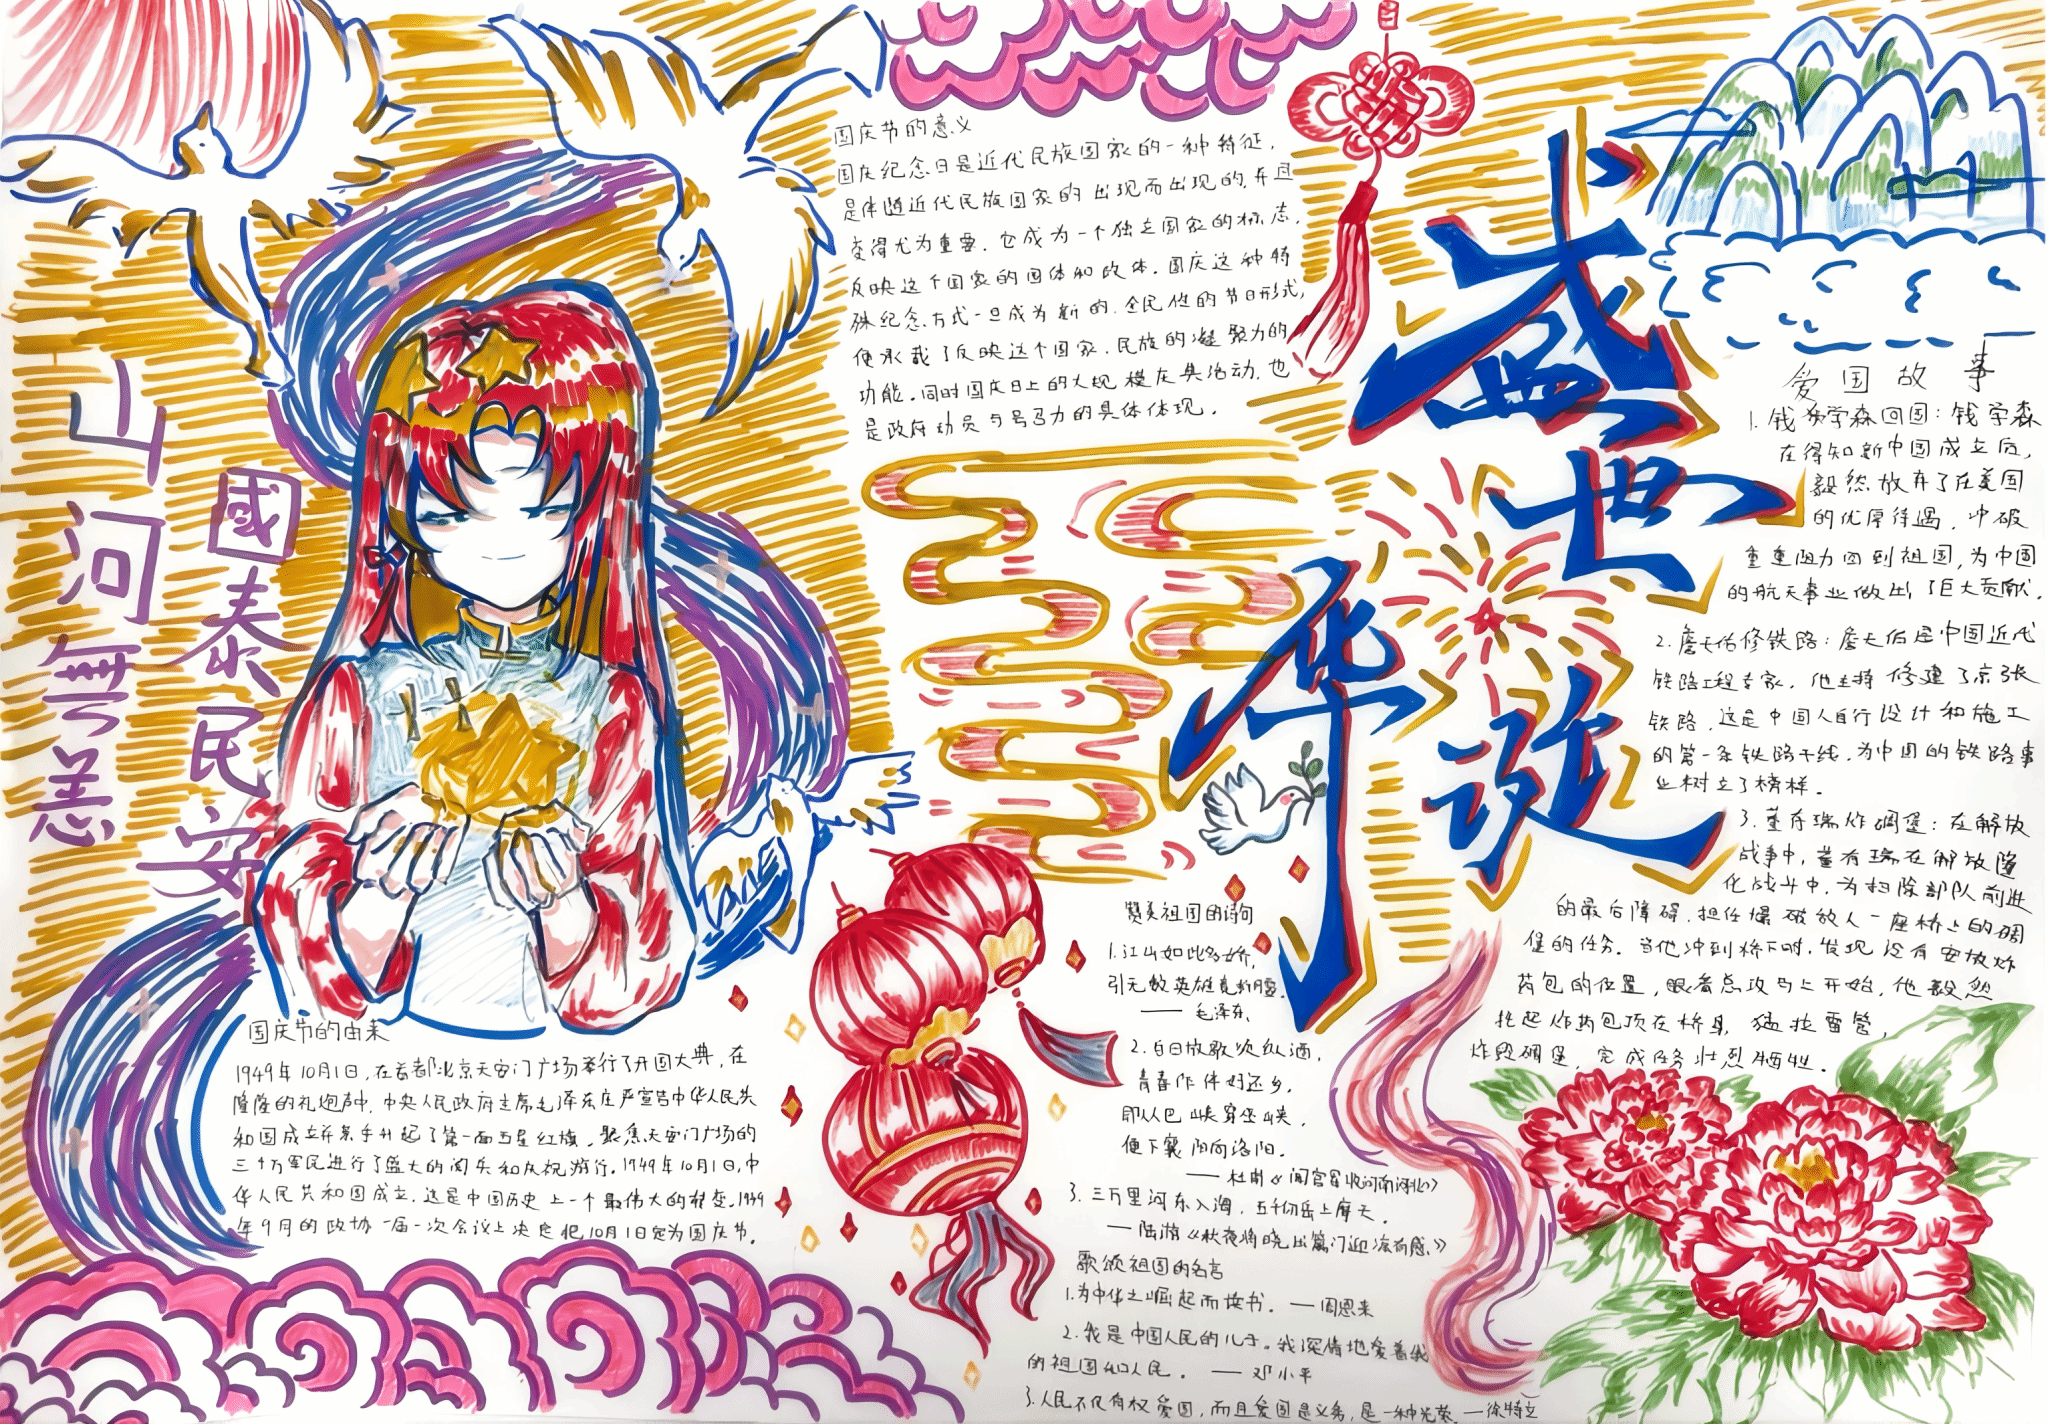 山河無恙
國泰民安
盛世华诞
国庆节的意义
国庆纪念日是近代民族国家的一种特征,
是伴随近代民族国家的出现而出现的,并且
变得尤为重要。它成为一个独立国家的标志,
反映这个国家的国体和政体。国庆这种特
殊纪念方式一旦成为新的、全民性的节日形式,
便承载了反映这个国家、民族的凝聚力的
功能。同时国庆日上的大规模庆典活动,也
是政府动员与号召力的具体体现。
爱国故事
1.钱学森回国:钱学森
在得知新中国成立后,
毅然放弃了在美国
的优厚待遇,冲破
重重阻力回到祖国,为中国
的航天事业做出了巨大贡献.
2.詹天佑修铁路:詹天佑是中国近代
铁路工程专家。他主持修建了京张
铁路,这是中国人自行设计和施工
的第一条铁路干线,为中国的铁路事
业树立了榜样。
3.董存瑞炸碉堡:在解放
战争中,董存瑞在解放隆
化战斗中,为扫除部队前进
的最后障碍,担任爆破敌人一座桥上的碉
堡的任务。当他冲到桥下时,发现没有安放炸
药包的位置,眼看总攻马上开始,他毅然
托起炸药包顶在桥身,猛拉雷管,
炸毁碉堡,完成任务壮烈牺牲。
国庆节的由来
1949年10月1日,在首都北京天安门广场举行了开国大典,在
隆隆的礼炮声中,中央人民政府主席毛泽东庄严宣告中华人民共
和国成立并亲手升起了第一面五星红旗。聚焦天安门广场的
三十万军民进行了盛大的阅兵和庆祝游行。1949年10月1日,中
华人民共和国成立,这是中国历史上一个最伟大的转变。1949
年9月的政协一届一次会议上决定把10月1日定为国庆节。
赞美祖国的诗句
1.江山如此多娇,
引无数英雄竞折腰。
—— 毛泽东
2.白日放歌须纵酒,
青春作伴好还乡。
即从巴峡穿巫峡,
便下襄阳向洛阳。
——杜甫《闻官军收河南河北》
3.三万里河东入海,五千仞岳上摩天。
—陆游《秋夜将晓出篱门迎凉有感》
歌颂祖国的名言
1.为中华之崛起而读书。—周恩来
2.我是中国人民的儿子。我深情地爱着我
的祖国和人民。——邓小平
3.人民不仅有权爱国,而且爱国是义务,是一种光荣。—徐特立